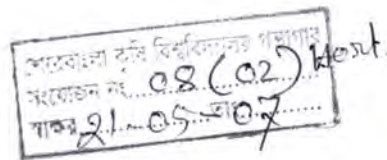 শেরেবাংলা কৃষি বিশ্ববিদ্যালয় গন্থাগার
সংযোজন নং 08 (02) Host.
স্বাক্ষর 21-05-07